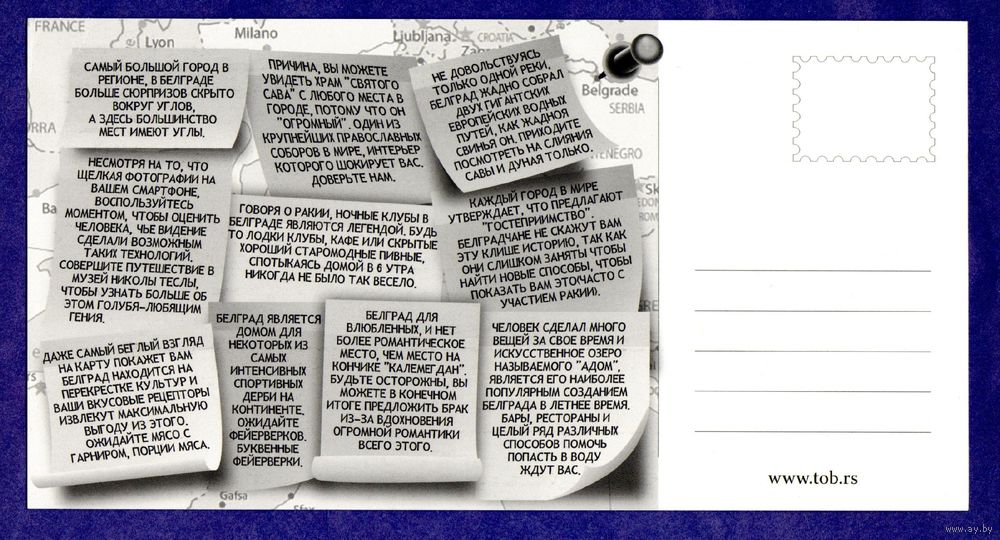 FRANCE
Lyon
Milano
Ljubljana
CROATIA
Belgrade
SERBIA
САМЫЙ БОЛЬШОЙ ГОРОД В
РЕГИОНЕ, В БЕЛГРАДЕ
БОЛЬШЕ СЮРПРИЗОВ СКРЫТО
ВОКРУГ УГЛОВ,
А ЗДЕСЬ БОЛЬШИНСТВО
МЕСТ ИМЕЮТ УГЛЫ.
ПРИЧИНА, ВЫ МОЖЕТЕ
УВИДЕТЬ ХРАМ "СВЯТОГО
САВА" С ЛЮБОГО МЕСТА В
ГОРОДЕ, ПОТОМУ ЧТО ОН
"ОГРОМНЫЙ". ОДИН ИЗ
КРУПНЕЙШИХ ПРАВОСЛАВНЫХ
СОБОРОВ В МИРЕ, ИНТЕРЬЕР
КОТОРОГО ШОКИРУЕТ ВАС.
ДОВЕРЬТЕ НАМ.
НЕ ДОВОЛЬСТВУЯСЬ
ТОЛЬКО ОДНОЙ РЕКИ,
БЕЛГРАД ЖАДНО СОБРАЛ
ДВУХ ГИГАНТСКИХ
ЕВРОПЕЙСКИХ ВОДНЫХ
ПУТЕЙ, КАК ЖАДНОЯ
СВИНЬЯ ОН. ПРИХОДИТЕ
ПОСМОТРЕТЬ НА СЛИЯНИЯ
САВЫ И ДУНАЯ ТОЛЬКО.
НЕСМОТРЯ НА ТО, ЧТО
ЩЕЛКАЯ ФОТОГРАФИИ НА
ВАШЕМ СМАРТФОНЕ,
ВОСПОЛЬЗУЙТЕСЬ
МОМЕНТОМ, ЧТОБЫ ОЦЕНИТЬ
ЧЕЛОВЕКА, ЧЬЕ ВИДЕНИЕ
СДЕЛАЛИ ВОЗМОЖНЫМ
ТАКИХ ТЕХНОЛОГИЙ.
СОВЕРШИТЕ ПУТЕШЕСТВИЕ В
МУЗЕЙ НИКОЛЫ ТЕСЛЫ,
ЧТОБЫ УЗНАТЬ БОЛЬШЕ ОБ
ЭТОМ ГОЛУБЯ-ЛЮБЯЩИМ
ГЕНИЯ.
ГОВОРЯ О РАКИИ, НОЧНЫЕ КЛУБЫ В
БЕЛГРАДЕ ЯВЛЯЮТСЯ ЛЕГЕНДОЙ. БУДЬ
ТО ЛОДКИ КЛУБЫ, КАФЕ ИЛИ СКРЫТЫЕ
ХОРОШИЙ СТАРОМОДНЫЕ ПИВНЫЕ,
СПОТЫКАЯСЬ ДОМОЙ В 6 УТРА
НИКОГДА НЕ БЫЛО ТАК ВЕСЕЛО.
КАЖДЫЙ ГОРОД В МИРЕ
УТВЕРЖДАЕТ, ЧТО ПРЕДЛАГАЮТ
"ГОСТЕПРИИМСТВО".
БЕЛГРАДЧАНЕ НЕ СКАЖУТ ВАМ
ЭТУ КЛИШЕ ИСТОРИЮ, ТАК КАК
ОНИ СЛИШКОМ ЗАНЯТЫ ЧТОБЫ
НАЙТИ НОВЫЕ СПОСОБЫ, ЧТОБЫ
ПОКАЗАТЬ ВАМ ЭТОЧАСТО С
УЧАСТИЕМ РАКИИ).
ДАЖЕ САМЫЙ БЕГЛЫЙ ВЗГЛЯД
НА КАРТУ ПОКАЖЕТ ВАМ
БЕЛГРАД НАХОДИТСЯ НА
ПЕРЕКРЕСТКЕ КУЛЬТУР И
ВАШИ ВКУСОВЫЕ РЕЦЕПТОРЫ
ИЗВЛЕКУТ МАКСИМАЛЬНУЮ
ВЫГОДУ ИЗ ЭТОГО.
ОЖИДАЙТЕ МЯСО С
ГАРНИРОМ, ПОРЦИИ МЯСА.
БЕЛГРАД ЯВЛЯЕТСЯ
ДОМОМ ДЛЯ
НЕКОТОРЫХ ИЗ
САМЫХ
ИНТЕНСИВНЫХ
СПОРТИВНЫХ
ДЕРБИ НА
КОНТИНЕНТЕ.
ОЖИДАЙТЕ
ФЕЙЕРВЕРКОВ.
БУКВЕННЫЕ
ФЕЙЕРВЕРКИ.
БЕЛГРАД ДЛЯ
ВЛЮБЛЕННЫХ, И НЕТ
БОЛЕЕ РОМАНТИЧЕСКОЕ
МЕСТО, ЧЕМ МЕСТО НА
КОНЧИКЕ "КАЛЕМЕГДАН".
БУДЬТЕ ОСТОРОЖНЫ, ВЫ
МОЖЕТЕ В КОНЕЧНОМ
ИТОГЕ ПРЕДЛОЖИТЬ БРАК
ИЗ-ЗА ВДОХНОВЕНИЯ
ОГРОМНОЙ РОМАНТИКИ
ВСЕГО ЭТОГО.
ЧЕЛОВЕК СДЕЛАЛ МНОГО
ВЕЩЕЙ ЗА СВОЕ ВРЕМЯ И
ИСКУССТВЕННОЕ ОЗЕРО
НАЗЫВАЕМОГО "АДОМ",
ЯВЛЯЕТСЯ ЕГО НАИБОЛЕЕ
ПОПУЛЯРНЫМ СОЗДАНИЕМ
БЕЛГРАДА В ЛЕТНЕЕ ВРЕМЯ.
БАРЫ, РЕСТОРАНЫ И
ЦЕЛЫЙ РЯД РАЗЛИЧНЫХ
СПОСОБОВ ПОМОЧЬ
ПОПАСТЬ В ВОДУ
ЖДУТ ВАС.
Gafsa
www.tob.rs
www.ay.by